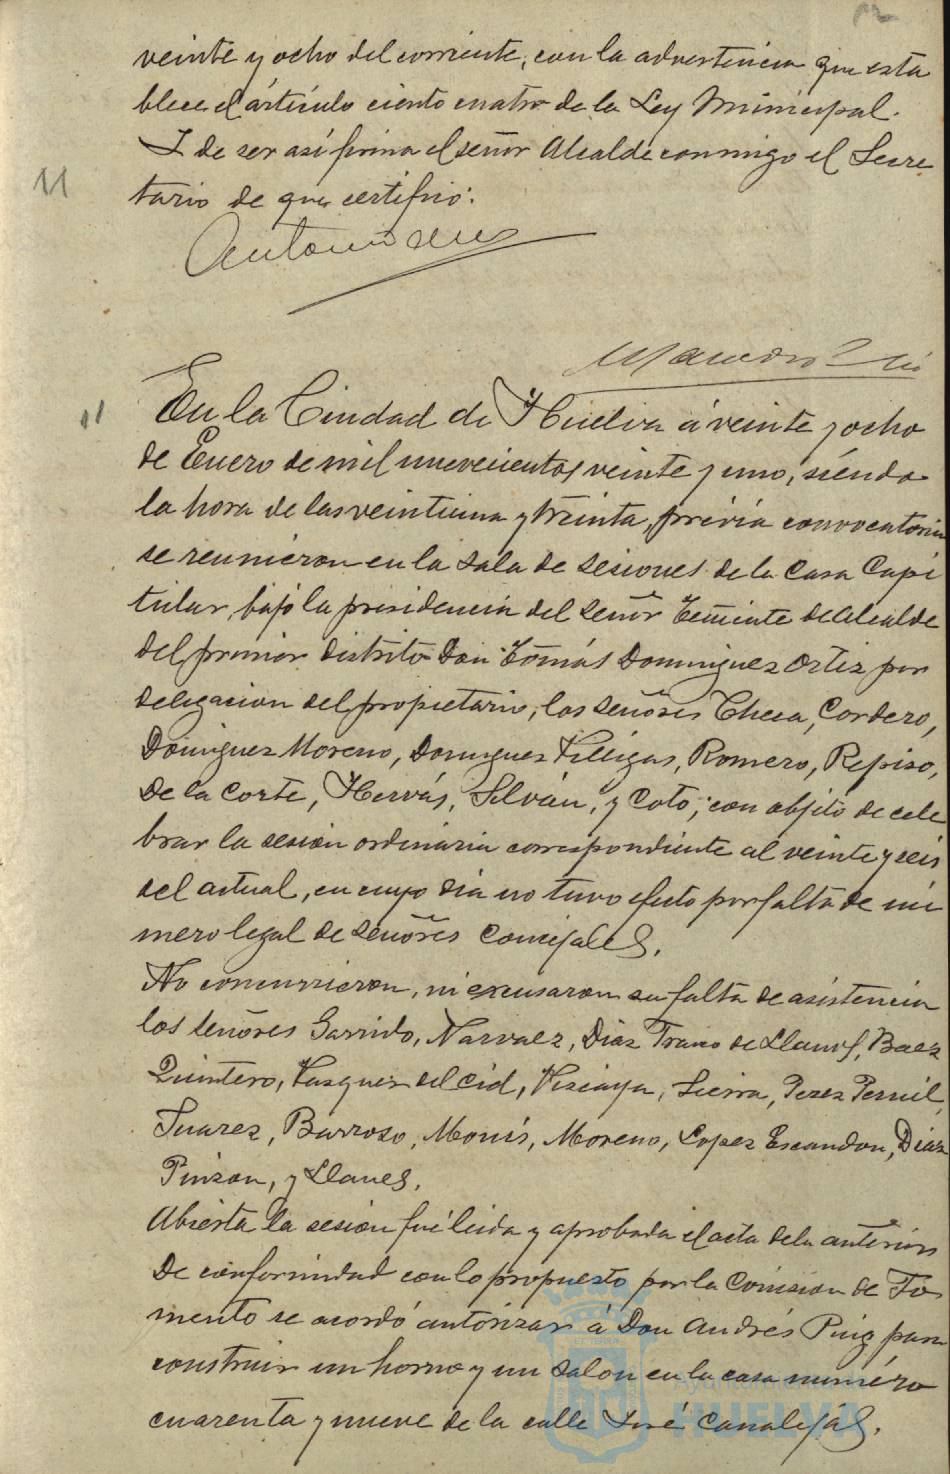 veinte y ocho del corriente, con la advertencia que esta
blece el artículo ciento cuatro de la Ley Municipal.
Y de ser así firma el señor Alcalde conmigo el Secre
11
tario de que certifico:
En la Ciudad de Huelva á veinte y ocho
11
de Enero de mil novecientos veinte y uno, siendo
la hora de las veintiuna y treinta, prévia convocatoria
se reunieron en la sala de sesiones de la Casa Capi
tular, bajo la presidencia del señor Teniente de Alcalde
del primer distrito Don Tomás Dominguez Ortiz por
delegacion del propietario, los señores Checa, Cordero,
Dominguez Moreno, Dominguez Villegas, Romero, Repiso,
De la Corte, Hervás, Silván, y Coto; con objeto de cele
brar la sesión ordinaria correspondiente al veinte y seis
del actual, en cuyo dia no tuvo efecto por falta de nú
mero legal de señores Concejales.
No concurrieron, ni excusaron su falta de asistencia
los señores Garrido, Narvaez, Diaz Franco de Llanos, Baez
Quintero, Vazquez del Cid, Vizcaya, Sierra, Perez Pernil,
Suarez, Barroso, Monis, Moreno, Lopez Escandon, Diaz
Pinzon, y Llanes.
Abierta la sesión fué leida y aprobada el acta de la anterior.
De conformidad con lo propuesto por la Comision de Fo
mento se acordó autorizar á Don Andrés Puig para
construir un horno y un salon en la casa número
cuarenta y nueve de la calle José Canalejas.
HUELVA